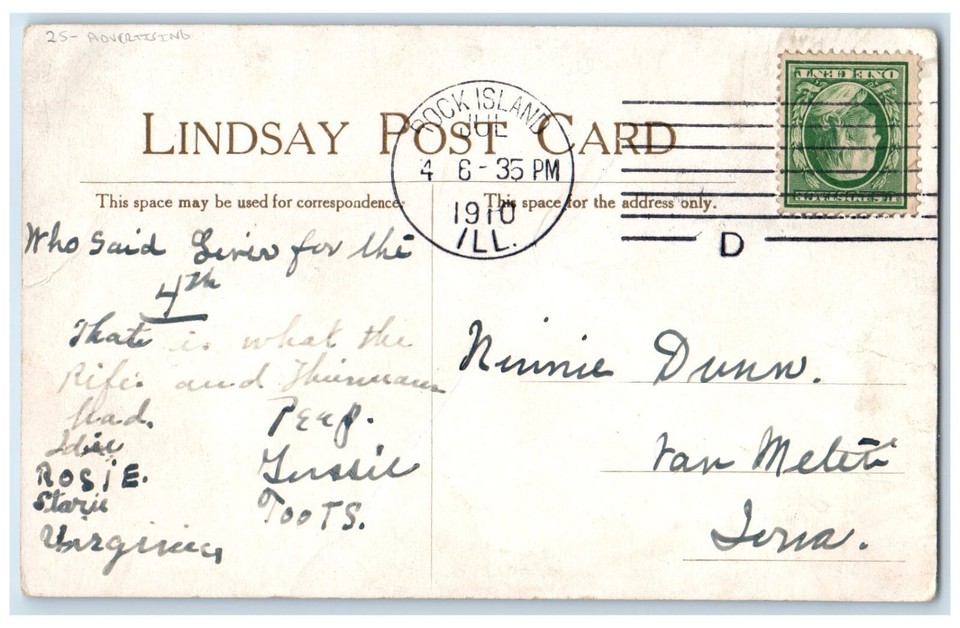 25- ADVERTISING
LINDSAY POST CARD
ROCK ISLAND
JUL
4 6-35 PM
1910
ILL.
D
ONE CENT
This space may be used for correspondence.
This space for the address only.
Who Said for the
4th
That is what the
and
had.
Idie
ROSIE.
Virginia
Perp.
Tussie
TooTS.
Minnie Dunn.
Van
Iowa.